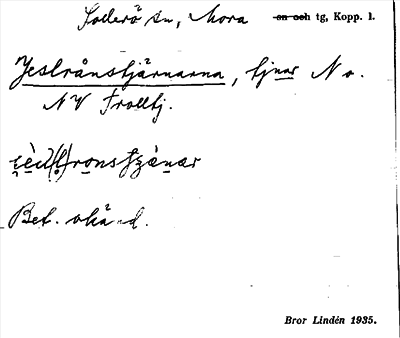 Sollerö sn, Mora s̶n̶ ̶o̶c̶h̶ tg, Kopp. l.
Jeslrånstjärnarna, tjnar N o.
NV Trolltj.
Bet. okänd.
Bror Lindén 1935.